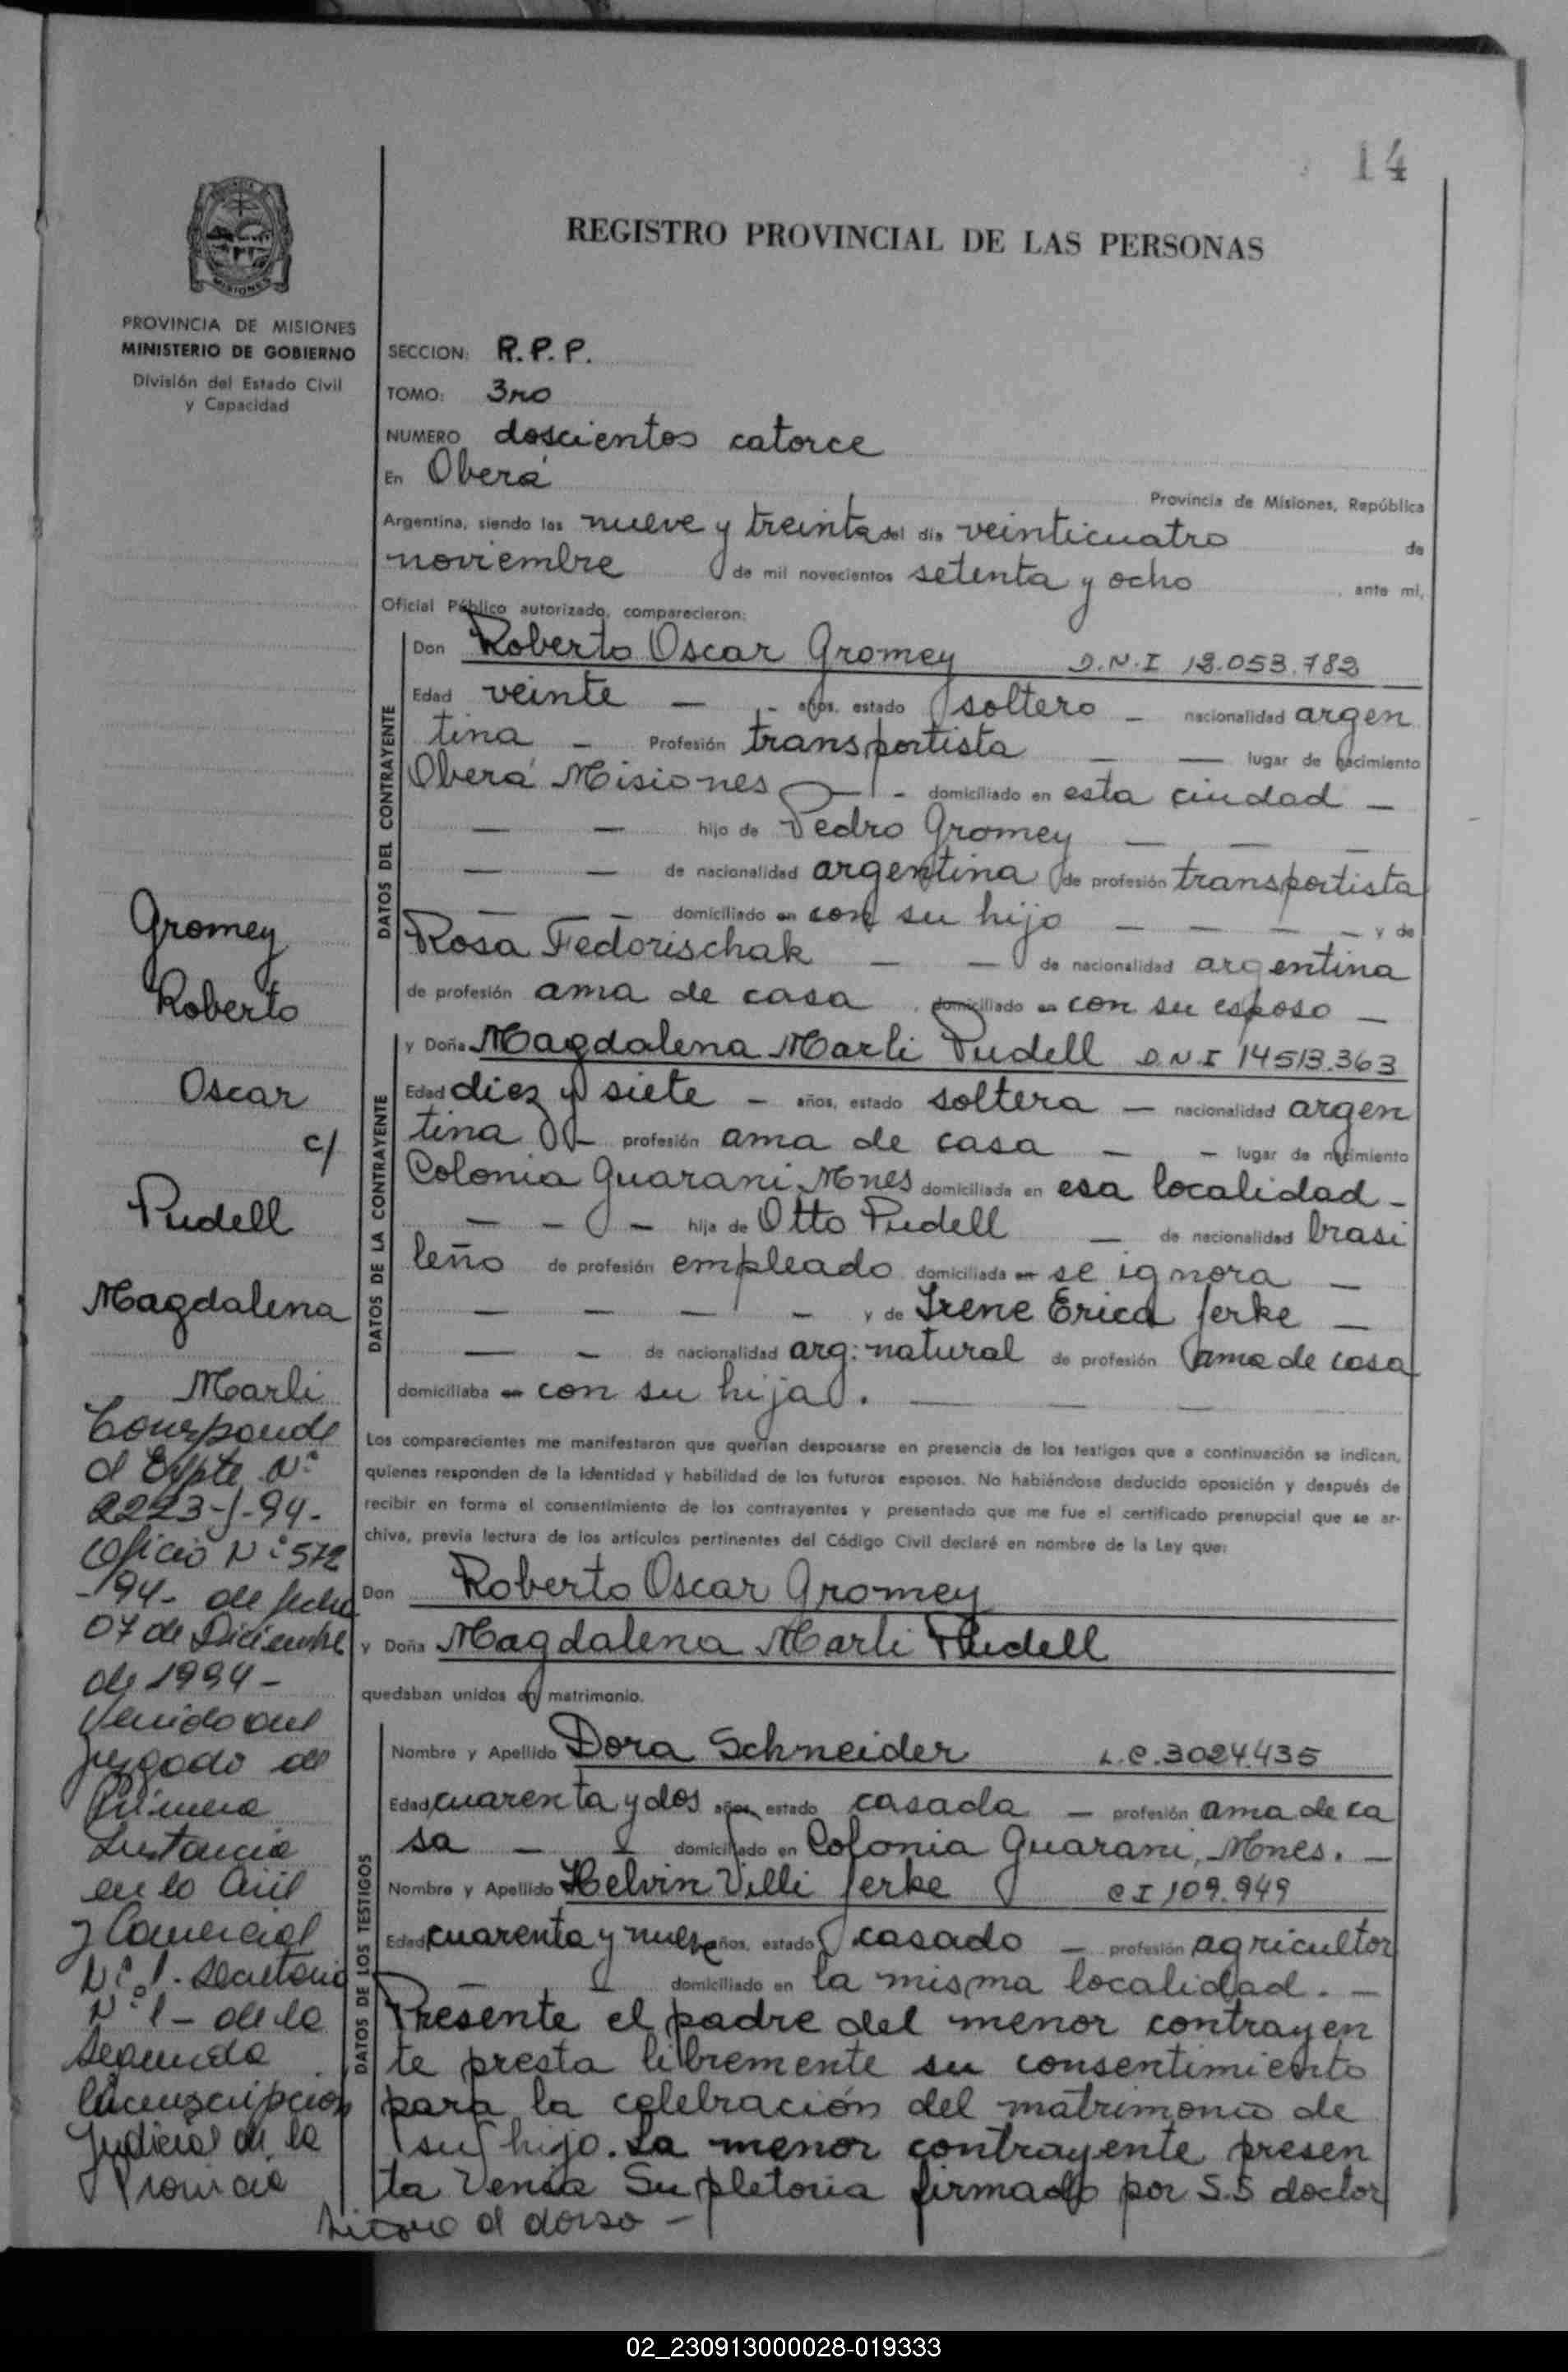 14
REGISTRO PROVINCIAL DE LAS PERSONAS
MISIONES
PROVINCIA DE MISIONES
MINISTERIO DE GOBIERNO
División del Estado Civil
y Capacidad
SECCION: R.P.P.
TOMO: 3ro
NUMERO doscientos catorce
En Oberá
Provincia de Misiones, República
Argentina, siendo las nueve y treinta del día veinticuatro de
noviembre de mil novecientos setenta y ocho, ante mí,
Oficial Público autorizado, comparecieron:
DATOS DEL CONTRAYENTE
Don Roberto Oscar Gromey D.N.I 12.053.782
Edad veinte — - años, estado soltero — nacionalidad argen
tina — Profesión transportista — — lugar de nacimiento
Oberá Misiones — - domiciliado en esta ciudad —
— — hijo de Pedro Gromey — — —
— — de nacionalidad argentina de profesión transportista
— — — domiciliado en con su hijo — — — — y de
Rosa Fedorischak — — de nacionalidad argentina
de profesión ama de casa, domiciliado en con su esposo —
DATOS DE LA CONTRAYENTE
y Doña Magdalena Marli Pudell D.N.I 14513.363
Edad diez y siete — años, estado soltera — nacionalidad argen
tina — profesión ama de casa — — lugar de nacimiento
Colonia Guarani Mnes domiciliada en esa localidad —
— — — hija de Otto Pudell — de nacionalidad brasi
leño de profesión empleado domiciliada en se ignora —
— — — — y de Irene Erica Jerke —
— — de nacionalidad arg: natural de profesión ama de casa
domiciliaba en con su hija. — — —
Los comparecientes me manifestaron que querían desposarse en presencia de los testigos que a continuación se indican,
quienes responden de la identidad y habilidad de los futuros esposos. No habiéndose deducido oposición y después de
recibir en forma el consentimiento de los contrayentes y presentado que me fue el certificado prenupcial que se ar-
chiva, previa lectura de los artículos pertinentes del Código Civil declaré en nombre de la Ley que:
Don Roberto Oscar Gromey
y Doña Magdalena Marli Pudell
quedaban unidos en matrimonio.
DATOS DE LOS TESTIGOS
Nombre y Apellido Dora Schneider L.C.3024.435
Edad cuarenta y dos años, estado casada — profesión ama de ca
sa — — domiciliado en Colonia Guarani, Mnes. —
Nombre y Apellido Helvin Villi Jerke C I 109.949
Edad cuarenta y nueve años, estado casado — profesión agricultor
— — domiciliado en la misma localidad. —
Presente el padre del menor contrayen
te presta libremente su consentimiento
para la celebración del matrimonio de
su hijo. La menor contrayente presen
ta Venia Supletoria firmado por S.S doctor
Gromey
Roberto
Oscar
c/
Pudell
Magdalena
Marli
el Expte Nº
2223-J-94-
Oficio Nº 572
-94- de fecha
07 de Diciembre
de 1994 -
Venido del
Juzgado de
Primera
Instancia
en lo Civil
y Comercial
Nº 1- Secretaria
Nº 1 - de la
Segunda
Circunscripcion
Judicial de la
Provincia
al dorso -
02_230913000028-019333